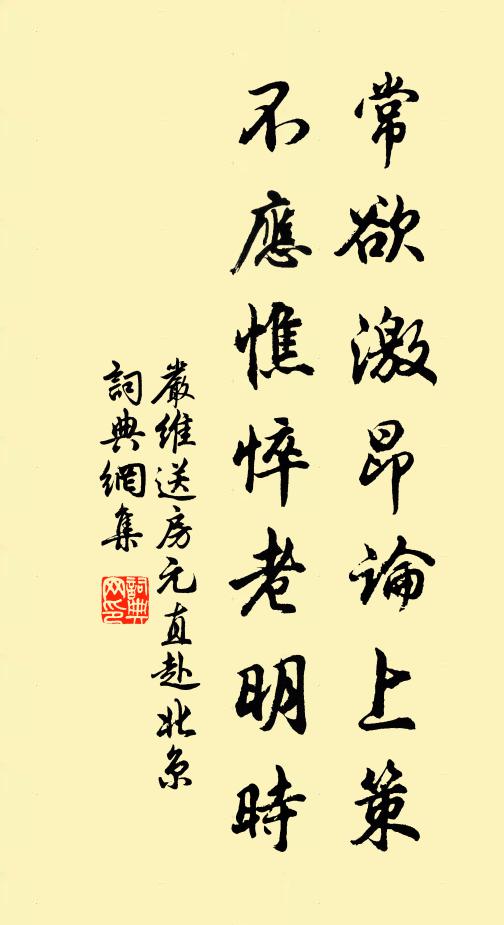 常欲激昂論上策
不應憔悴老明時
嚴維送房元直赴北京
詞典網集
詞典網印